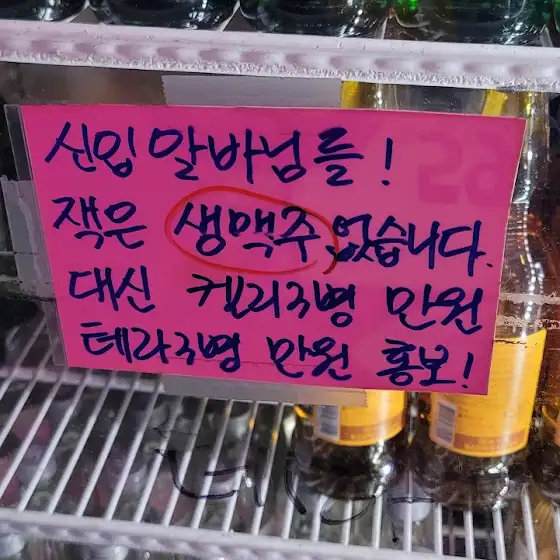 신입 알바님들!
잭은 생맥주 없습니다.
대신 켈리3병 만원
테라3병 만원 홍보!